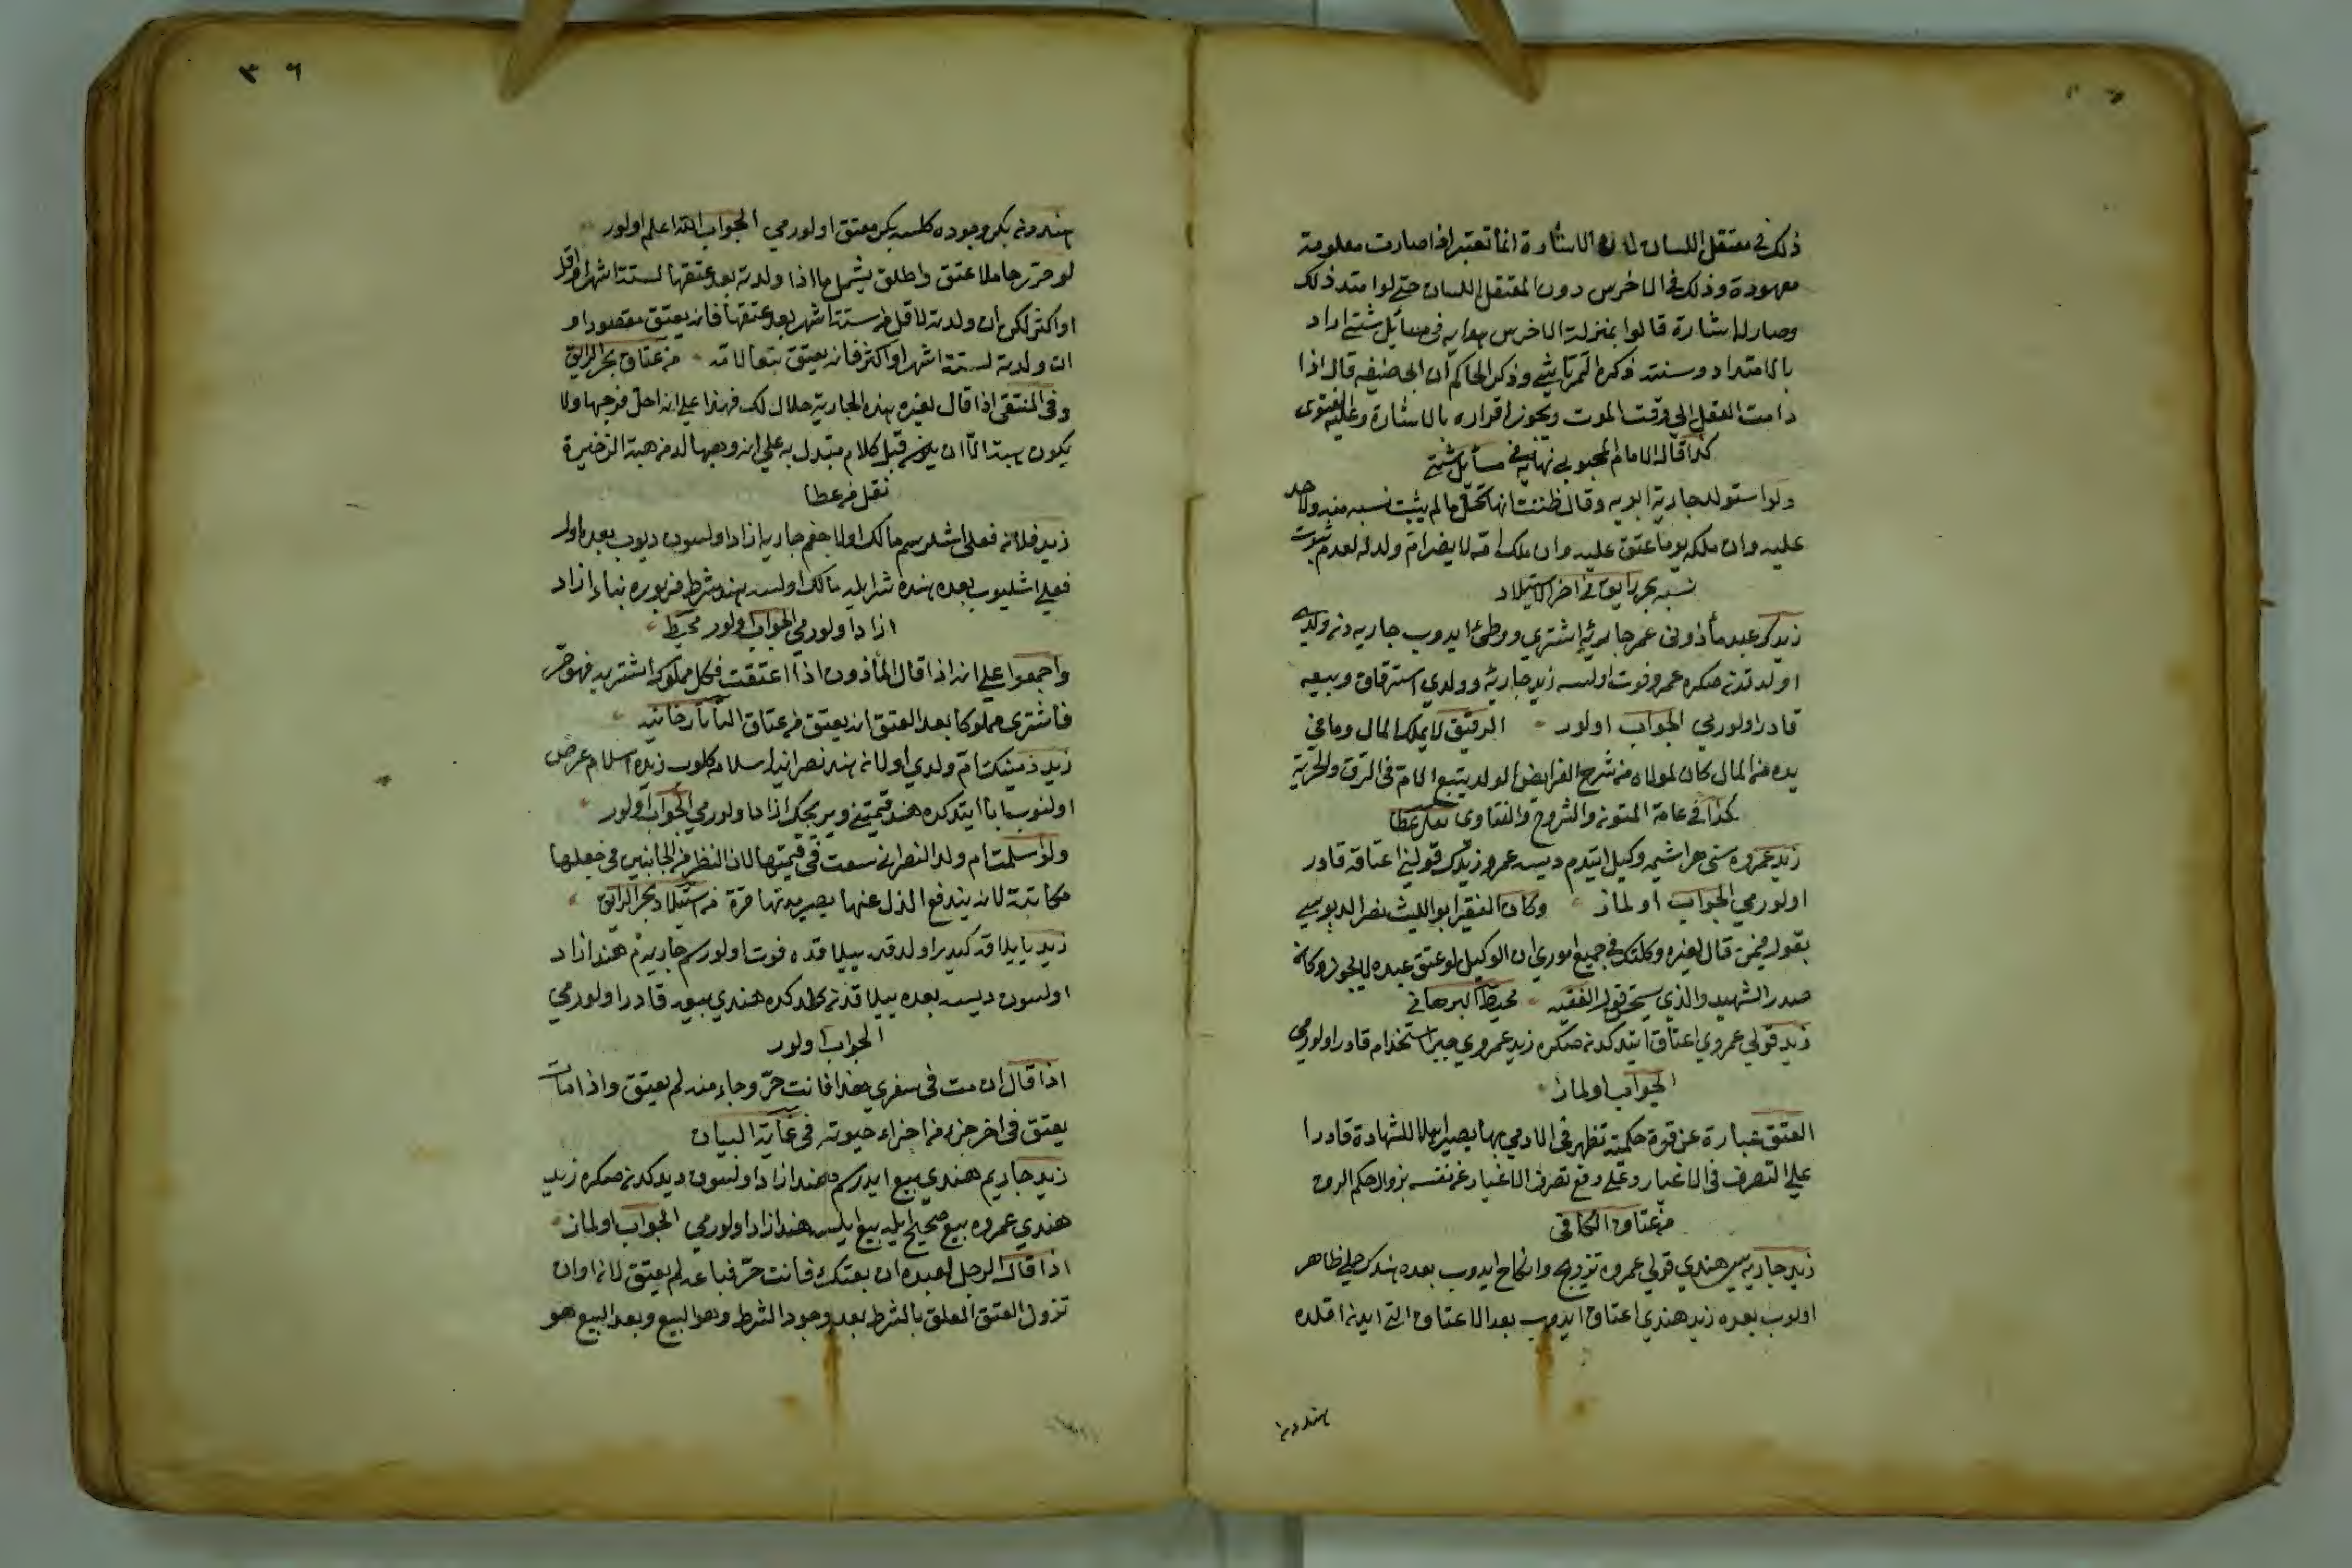 ذلك في معتقل اللسان لان الاشارة انما تعتبر اذا صارت معلومة
معهودة وذلك في الاخرس دون المعتقل اللسان حتى لو امتد ذلك
وصار له اشارة قالوا بمنزلة الاخرس هدايه في مسائل شتى اراد
بالامتداد وسنته ذكره التمرتاشي وذكر الحاكم ان ابا حنيفه قال اذا
دامت العقل الى وقت الموت ويجوز اقراره بالاشارة وعليه الفتوى
كذا قال الامام المحبوبي نهايه في مسائل شتى
ولو استولد جارية ابويه وقال ظننت انها تحل لم يثبت نسبه منه ولا حد
عليه وان ملكه يوما عتق عليه وان ملك امه لا يصير ام ولد له لعدم ثبوت
نسبه بحر رايق في اخر الاستيلاد
زيدك عبد مأذوني عمر جاريه اشتري ووطئ ايدوب جاريه دن ولدي
اولدقدنصكره عمرو فوت اولسه زيد جاريه وولدي استرقاق وبيعه
قادر اولورمي الجواب اولور الرقيق لا يملك المال وما في
يده من المال كان لمولاه من شرح الفرايض الولد يتبع الام في الرق والحرية
كذا في عامة المتون والشروح والفتاوى نقل عطا
زيد عمروه سني هر ايشمه وكيل ايتدم ديسه عمرو زيدك قوليني اعتاقه قادر
اولورمي الجواب اولماز وكان الفقيه ابو الليث نصر الدبوسي
يقول فيمن قال لغيره وكلتك في جميع اموري ان الوكيل لو عتق عبده لا يجوز وكان
صدر الشهيد والذي يستحق قول الفقيه محيط البرهاني
زيد قولي عمروي اعتاق ايتدكدنصكره زيد عمروي جبرا استخدام قادر اولورمي
الجواب اولماز
العتق عبارة عن قوة حكمية تظهر في الادمي بها يصير اهلا للشهادة قادرا
على التصرف في الاغيار وعلى دفع تصرف الاغيار عن نفسه بزوال حكم الرق
من عتاق الكافي
زيد جاريه سي هندي قولي عمروه تزويج وانكاح ايدوب بعده هندك حملي ظاهر
اولوب بعده زيد هندي اعتاق ايدوب بعد الاعتاق التي ايدن اقلده
هنددن
٣٦
هنددن بكر وجوده كلسه بكر معتق اولورمي الجواب الله اعلم اولور
لو حرر حاملا عتق واطلق يشمل ما اذا ولدته بعد عتقها لستة اشهر او اقل
او اكثر لكن ان ولدته لاقل من ستة اشهر بعد عتقها فانه يعتق مقصودا و
ان ولدته لستة اشهر او اكثر فانه يعتق تبعا لامه من عتاق بحر الرايق
وفي المنتقى اذا قال لغيره هذه الجارية حلال لك فهذا على انه احل فرجها ولا
يكون هبة الا ان يكون قبل كلام يستدل به على انه وهبها له من هبة الذخيرة
نقل من عطا
زيد فلان فعلي اشلرسم مالك اولاجغم جاريه ازاد اولسون ديوب بعده اول
فعلي اشليوب بعده هنده شرا ايله مالك اولسه هند شرط مزبوره بناء ازاد
ازاد اولورمي الجواب اولور محيط
واجمعوا على انه اذا قال المأذون اذا اعتقت فكل مملوك اشتريه فهو حر
فاشترى مملوكا بعد العتق انه يعتق من عتاق التاتارخانيه
زيد ذمينك ام ولدي اولان هند نصرانيه اسلامه كلوب زيده اسلام عرض
اولنوب ابا ايتدكده هند قيمتني ويريجك ازاد اولورمي الجواب اولور
ولو اسلمت ام ولد النصراني سعت في قيمتها لان النظر من الجانبين في جعلها
مكاتبة لانه يندفع الذل عنها بصيرورتها حرة من استيلاد بحر الرايق
زيد يايلاقه كيدر اولدقده ييلاقده فوت اولورسم جاريم هند ازاد
اولسون ديسه بعده ييلاقدن كلدكده هندي بيعه قادر اولورمي
الجواب اولور
اذا قال ان مت في سفري هذا فانت حر وجاء منه لم يعتق واذا مات
يعتق في اخر جزء من اجزاء حيوته في غاية البيان
زيد جاريم هندي بيع ايدرسم هند ازاد اولسون ديدكدنصكره زيد
هندي عمروه بيع صحيح ايله بيع ايلسه هند ازاد اولورمي الجواب اولماز
اذا قال الرجل لعبده ان بعتك فانت حر فباعه لم يعتق لانه اوان
نزول العتق المعلق بالشرط بعد وجود الشرط وهو البيع وبعد البيع هو